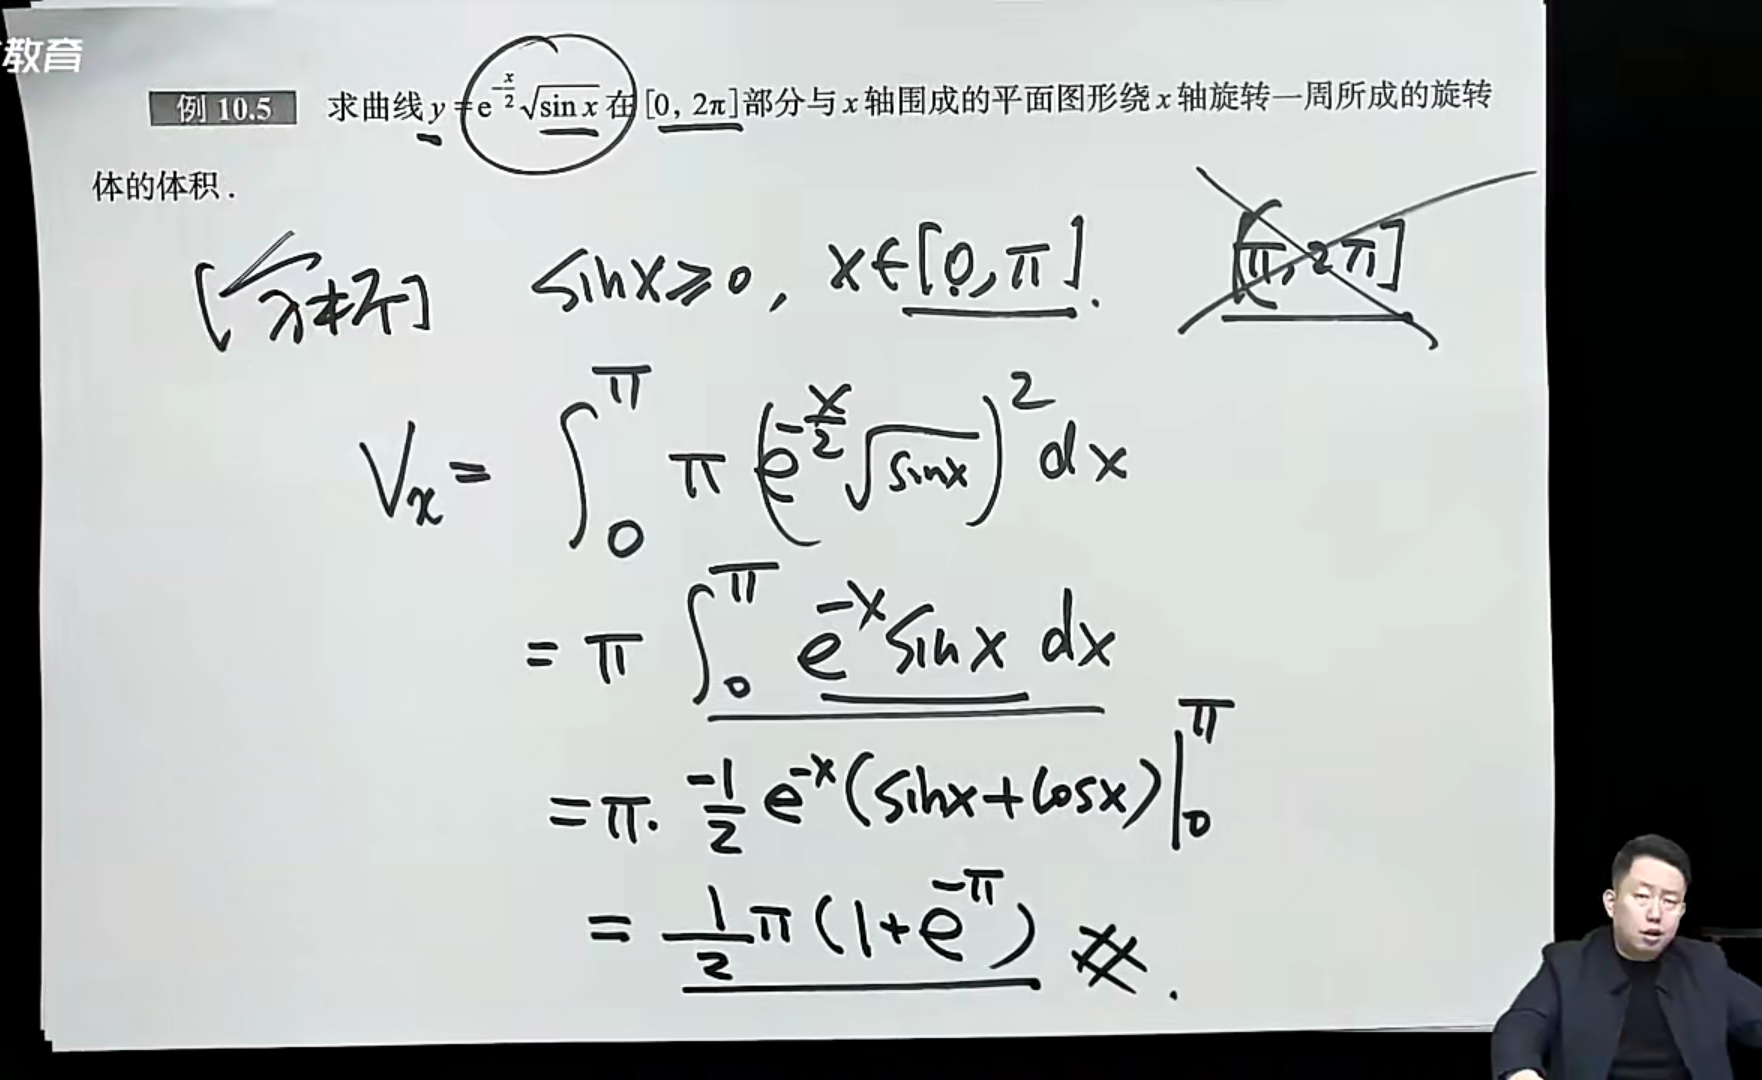 教育
例 10.5 求曲线 y = e^{-\frac{x}{2}}\sqrt{\sin x} 在 [0, 2π] 部分与 x 轴围成的平面图形绕 x 轴旋转一周所成的旋转
体的体积.
[分析] sinx ≥ 0, x∈[0,π]. [π,2π]
V_x = ∫_0^π π (e^{-\frac{x}{2}}\sqrt{sinx})^2 dx
= π ∫_0^π e^{-x} sinx dx
= π · \frac{-1}{2} e^{-x}(sinx+cosx)|_0^π
= \frac{1}{2}π(1+e^{-π}) #.